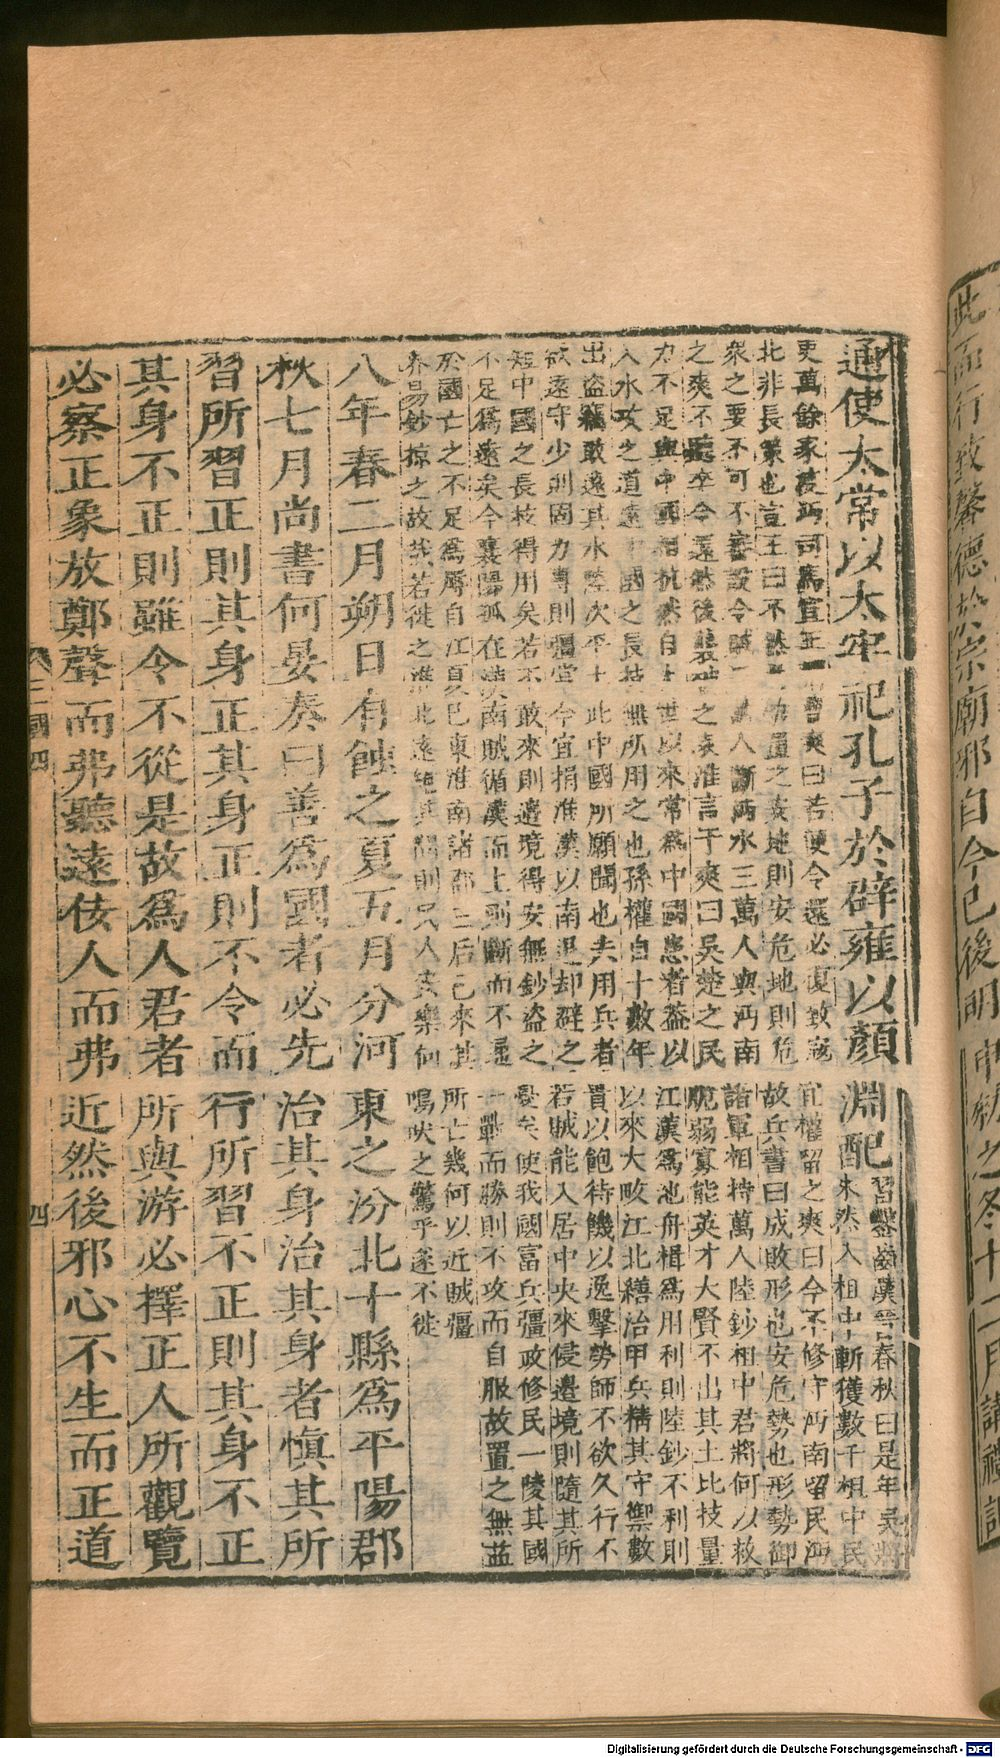 此而行致馨德於宗廟邪自今已後明申勑之冬十二月講禮記
通使太常以太牢祀孔子於辟雍以顏淵配
習鑿齒漢晉春秋曰是年吳將
朱然入柤中斬獲數千柤中民
吏萬餘家渡沔司馬宣王謂曹爽曰若便令還必復致寇宜權留之爽曰今不修守沔南留民沔
北非長策也宣王曰不然凡物置之安地則安危地則危故兵書曰成敗形也安危勢也形勢御
衆之要不可不審設令賊二萬人斷沔水三萬人與沔南諸軍相持萬人陸鈔柤中君將何以救
之爽不聽卒令還然後襲破之袁淮言于爽曰吳楚之民脆弱寡能英才大賢不出其土比技量
力不足與中國相抗然自上世以來常爲中國患者蓋以江漢爲池舟楫爲用利則陸鈔不利則
入水攻之道遠中國之長技無所用之也孫權自十數年以來大畋江北繕治甲兵精其守禦數
出盜竊敢遠其水陸次平土此中國所願聞也夫用兵者貴以飽待饑以逸擊勞師不欲久行不
欲遠守少則固力專則彊當今宜捐淮漢以南退却避之若賊能入居中央來侵邊境則隨其所
短中國之長技得用矣若不敢來則邊境得安無鈔盜之憂矣使我國富兵彊政修民一陵其國
不足爲遠矣今襄陽孤在漢南賊循漢而上則斷而不通一戰而勝則不攻而自服故置之無益
於國亡之不足爲辱自江夏已東淮南諸郡三后已來其所亡幾何以近賊疆
界易鈔掠之故哉若徙之淮北遠絕其間則民人安樂何鳴吠之驚乎遂不徙
八年春二月朔日有蝕之夏五月分河東之汾北十縣爲平陽郡
秋七月尚書何晏奏曰善爲國者必先治其身治其身者慎其所
習所習正則其身正其身正則不令而行所習不正則其身不正
其身不正則雖令不從是故爲人君者所與游必擇正人所觀覽
必察正象放鄭聲而弗聽遠佞人而弗近然後邪心不生而正道
三國四
四
Digitalisierung gefördert durch die Deutsche Forschungsgemeinschaft - DFG